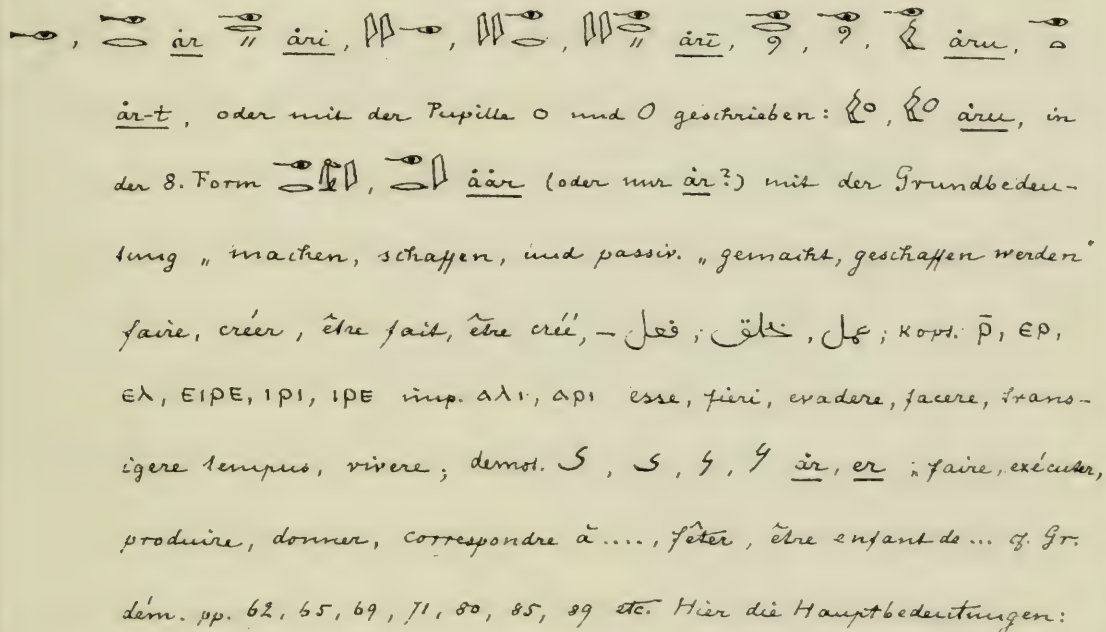 𓁹, 𓁹𓂋 ȧr 𓁹𓂋𓏭 ȧri, 𓇌𓁹, 𓇌𓁹𓂋, 𓇌𓁹𓂋𓏭 ȧrī, 𓁹𓂋𓏲, 𓁹𓏲, 𓁹 ȧru, 𓁹𓏏
ȧr-t, oder mit der Pupille o und O geschrieben: o, O ȧru, in
der 8. Form 𓁹𓂋𓀁𓇋, 𓁹𓂋𓇋 ȧȧr (oder nur ȧr?) mit der Grundbedeu-
tung „machen, schaffen, und passiv. „gemacht, geschaffen werden"
faire, créer, être fait, être créé, – عمل, خلق, فعل; kopt. ⲣ̄, ⲉⲣ,
ⲉⲗ, ⲉⲓⲣⲉ, ⲓⲣⲓ, ⲓⲣⲉ imp. ⲁⲗⲓ, ⲁⲣⲓ esse, fieri, evadere, facere, trans-
igere tempus, vivere; demot. ȧr, er; faire, exécuter,
produire, donner, correspondre à ...., fêter, être enfant de ... cf. Gr.
dém. pp. 62, 65, 69, 71, 80, 85, 89 etc. Hier die Hauptbedeutungen: